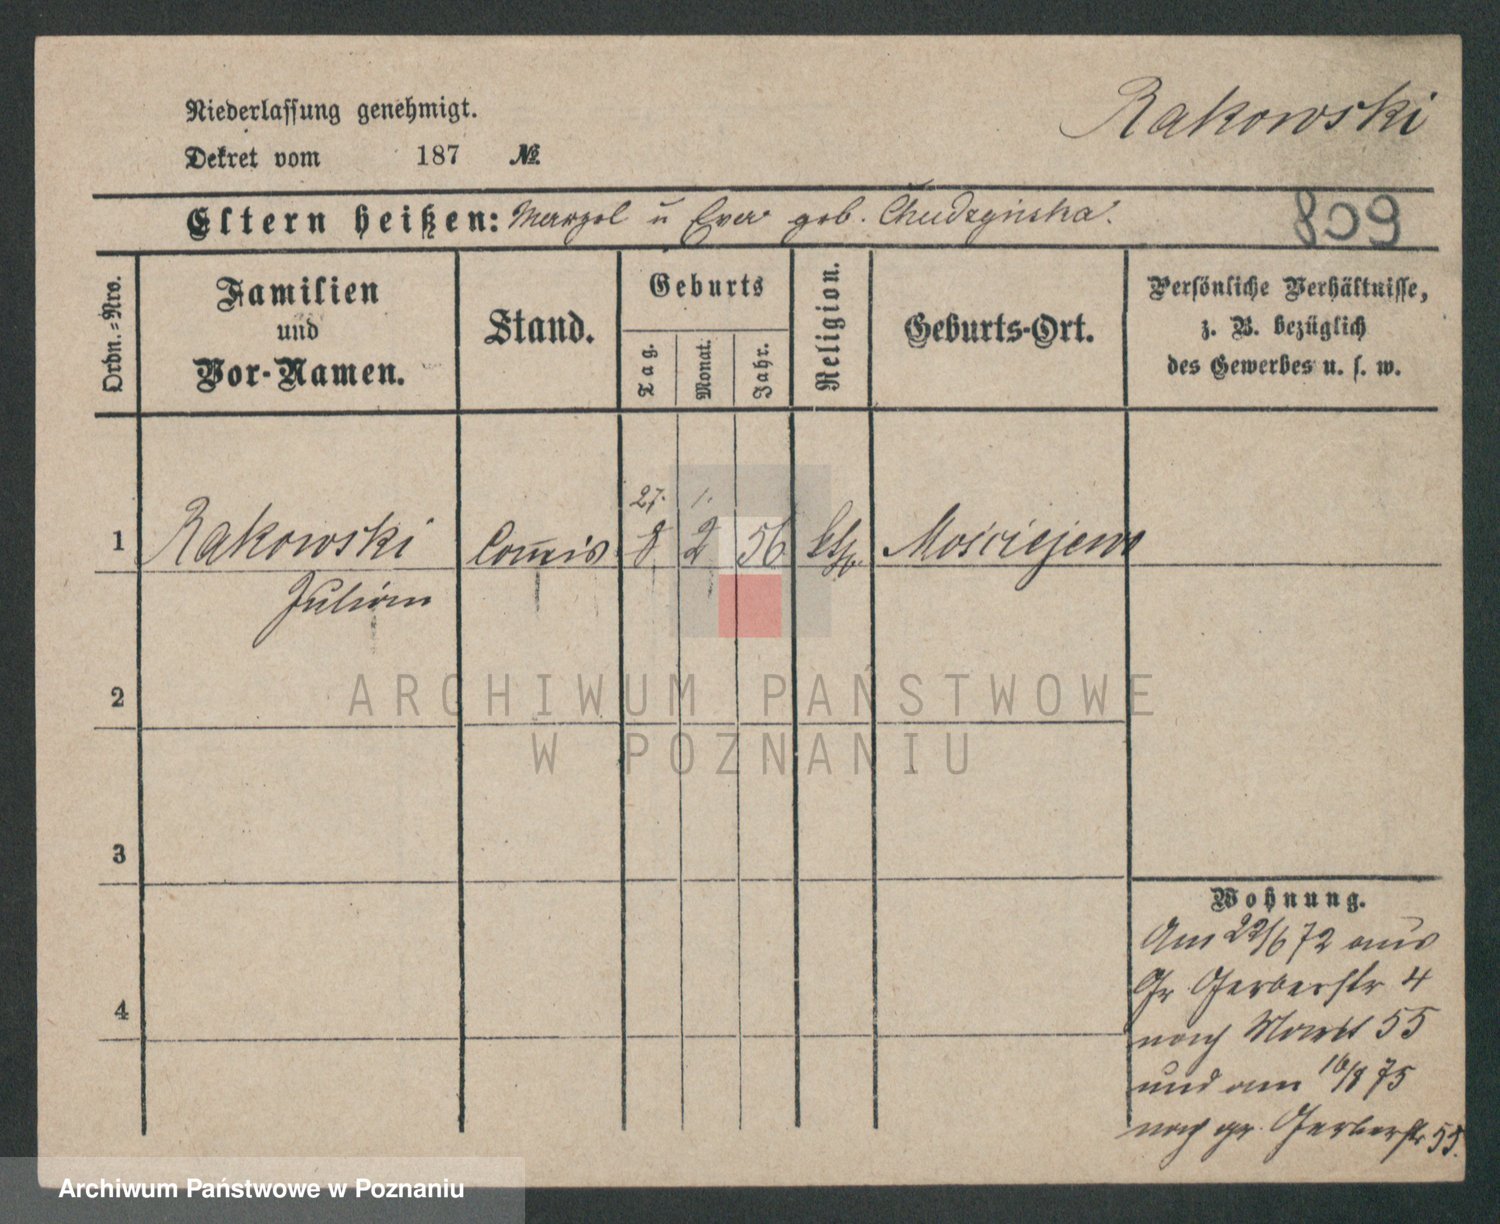 Niederlassung genehmigt.
Rakowski
Dekret vom 187 №
Eltern heißen: u Eva geb. Chudzyńska.
809
Ordn.-Nro.
Familien
und
Vor-Namen.
Stand.
Geburts
Tag.
Monat.
Jahr.
Religion.
Geburts-Ort.
Persönliche Verhältnisse,
z. B. bezüglich
des Gewerbes u. s. w.
27. 1.
1 Rakowski Commis 8 2 56 Mościejewo
Julian
2
ARCHIWUM PAŃSTWOWE
W POZNANIU
3
4
Wohnung.
Am 22/6 72 aus
Gr Gerberstr 4
nach Markt 55
und am 16/8 75
nach gr. Gerberstr 55.
Archiwum Państwowe w Poznaniu